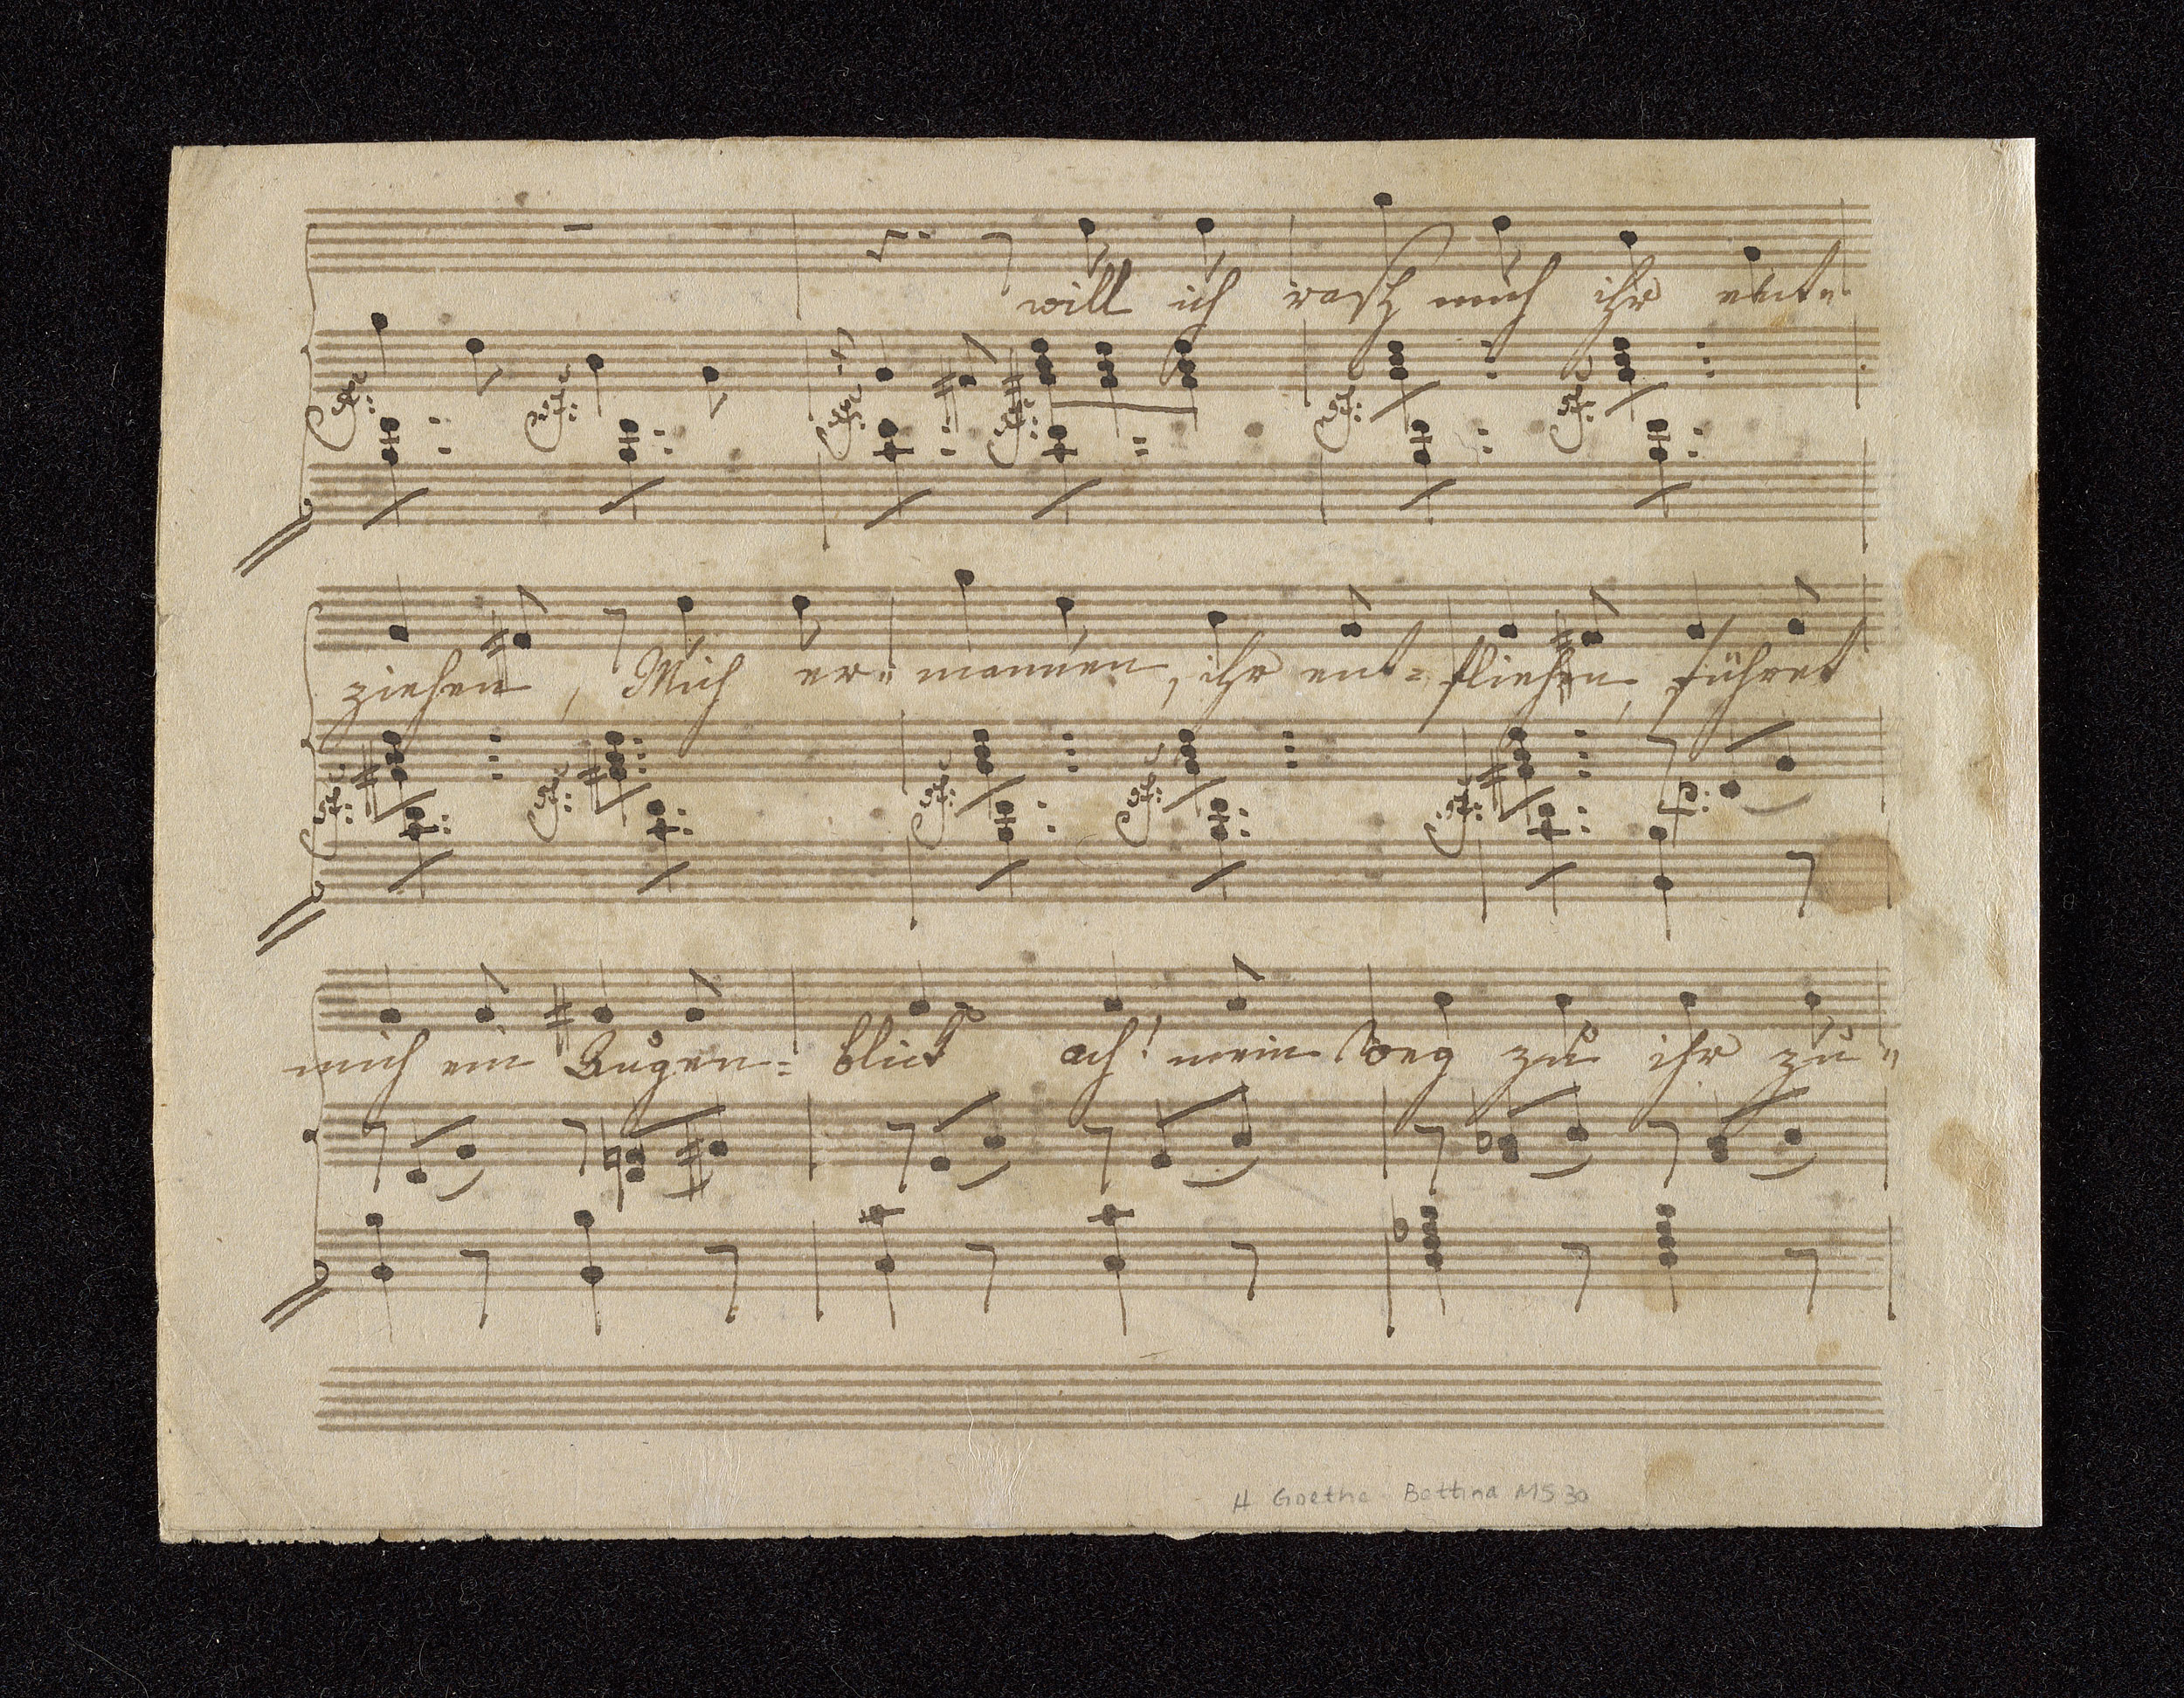 will ich rasch mich ihr ent=
ziehen, Mich er= mannen, ihr ent= fliehen, führet
mich ein Augen= blick ach! mein Weg zu ihr zu=
H Goethe Bettina MS 30